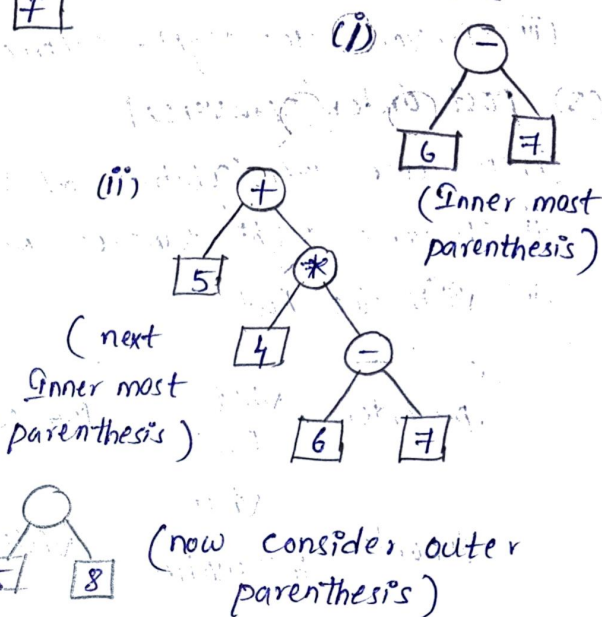 7
(i)
−
6 7
(Inner most
parenthesis)
(ii)
+
5 *
4 −
6 7
(next
Inner most
parenthesis)
8
(now consider outer
parenthesis)